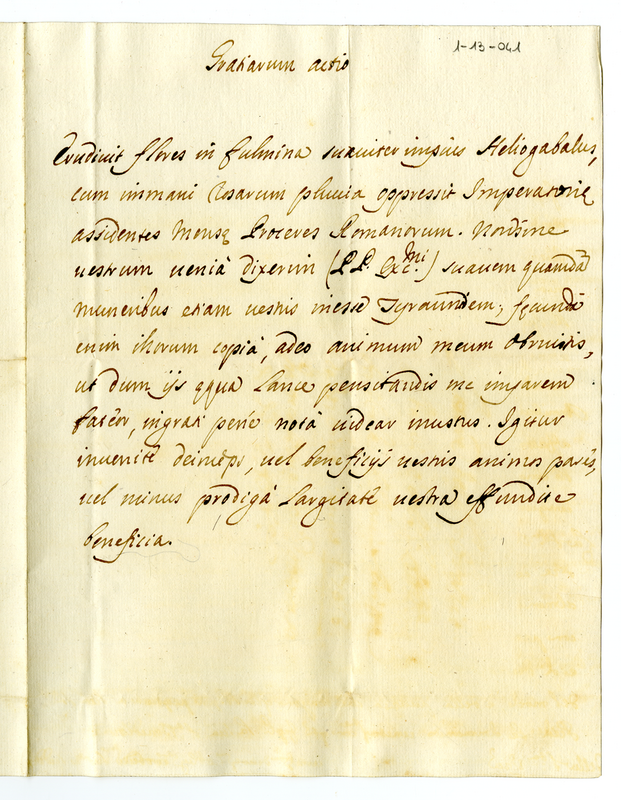 1-13-041
Gratiarum actio
Erudivit flores in fulmina suaviter impius Heliogabalus,
cum inmani rosarum pluvia oppressit Imperatorię
assidentes Mensę Proceres Romanorum. Nondine
uestrum ueniâ dixerim (PP. Exc.mi) suauem quandã
muneribus etiam uestris inesse Tyrannidem; fęcundâ
enim illorum copiâ, adeo animum meum obruistis,
ut dum ijs ęqua Lance pensitandis me imparem
fateor, ingrati penè notâ uidear inustus. Igitur
inuenite deinceps, uel beneficijs uestris animos pares,
uel minus prodigâ Largitate uestra effundite
beneficia.